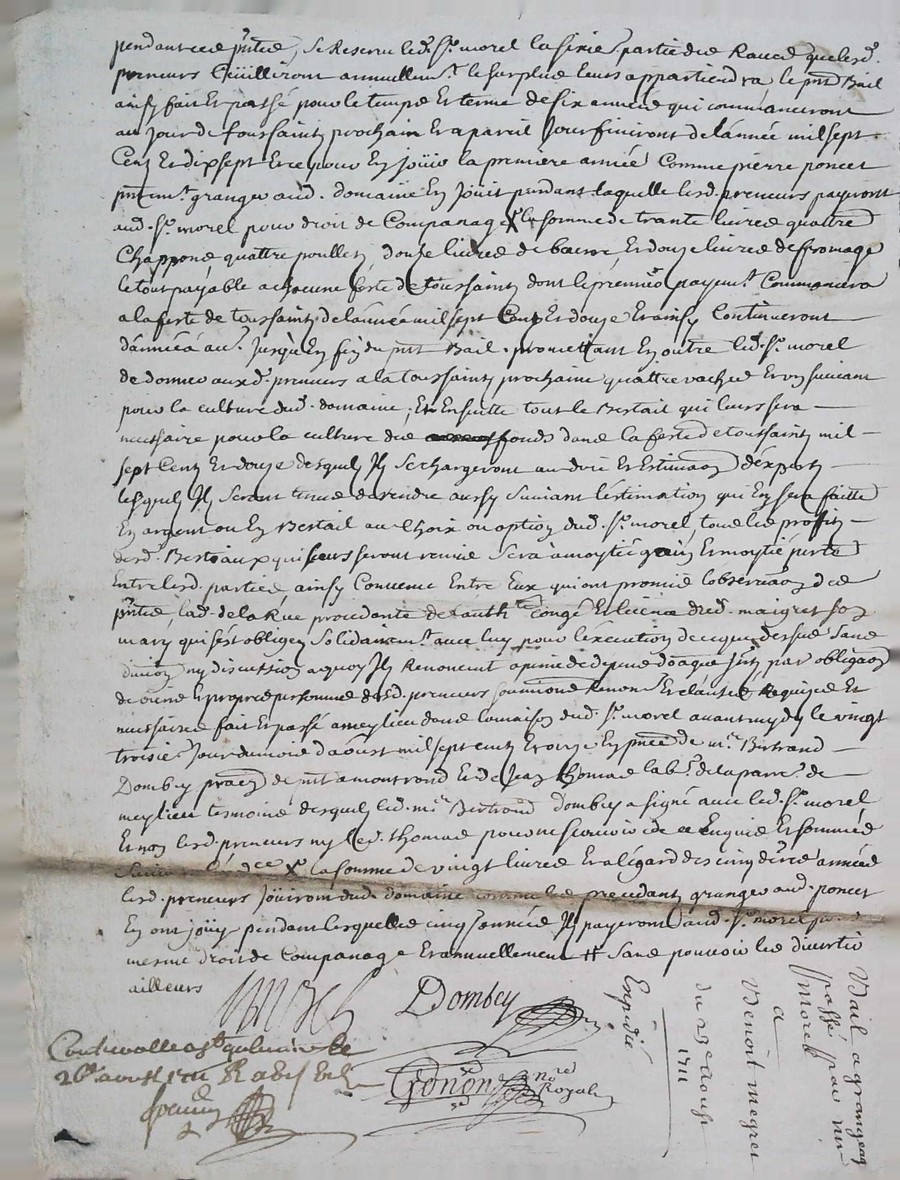 pendant ces p̃ntes, se Reserve led. Sr. morel la sixie. partie des Raves que lesd.
preneurs Cüilliront annuellemt. le surplus leurs appartiendra le pnt Bail
ainsy fait Et passé pour le temps Et terme de six années qui commanceront
au Jour de toussaintz prochain Et a pareil Jour finiront de L'année mil sept
Cent Et dix sept Et ce pour En joüir la première année Comme pierre poncet
granger aud. domaine En Joüit pendant laquelle lesd. preneurs payeront
aud. Sr. morel pour droit de Companage X la somme de trante livres quattre
Chappons quattre poulletz douze livres de beurre Et douze livres de fromage
le tout payable a chacune feste de toussaintz dont le premier payemt. Commancera
a la feste de toussaintz de l'année mil sept Cent Et douze Et ainsy Continueront
d'année a au. Jusqu'En fin du pnt Bail. promettant En outre led. Sr. morel
de donner auxd. preneurs a la toussaintz prochaine quattre vaches Et un suivant
pour la culture dud. domaine, Et Ensuitte tout le Bestail qui leurs sera
necessaire pour la culture des fonds dans la feste de toussaintz mil
sept Cent Et douze desquelz Ilz se chargeront au dire Et Estimaon d'Expertz
lesquelz Ilz seront tenus de rendre aussy suivant l'estimation qui En sera faitte
En argent ou En Bestail au Choix ou option dud. Sr. morel tous les profitz
desd. Bestiaux qui leurs seront remis sera a moytié gain Et moytié perte
Entre lesd. parties ainsy Convenus Entre Eux qui ont promis l'observaon des
p̃ntes lad. de la Rue procedante de l'authté. Congé Et licence dud. maigret son
mary qui s'est obligée solidairemt. avec luy pour l'execution de ce que dessus sans
division ny discussion a quoy Ilz Renoncent a peine de depens par obligaon
de biens Et propres personnes desd. preneurs soumissions Renons. Et clauses Requises Et
necessaires fait Et passé a meylieu dans la maison dud. Sr. morel avant mydy le vingt
troisie. Jour du mois d'aoust mil sept cent Et onze En pñce de mr. Bertrand
Dombey praen de a montrond Et de Jean thomas labr. de la parre. de
meylieu temoins desquelz led. mr. Bertrand dombey a signé avec led. Sr. morel
Et non lesd. preneurs ny led. thomas pour ne sçavoir de ce Enquis Et sommés
X la somme de vingt livres Et a l'égard des cinq dernieres années
lesd. preneurs Joüiront dud. domaine comme les precedant grangers aud. poncet
En ont joüy pendant lesquelles cinq années Ilz payeront aud. Sr. morel
mesme droit de Companage Et annuellement # sans pouvoir les divertir
ailleurs
Dombey
Gonon nore Royal
Controllé a St galmier le
26e aoust 1711
Expédié
du 23e aoust
1711
Bail a grangeag
passé par mr
Morel
a
Benoit megret